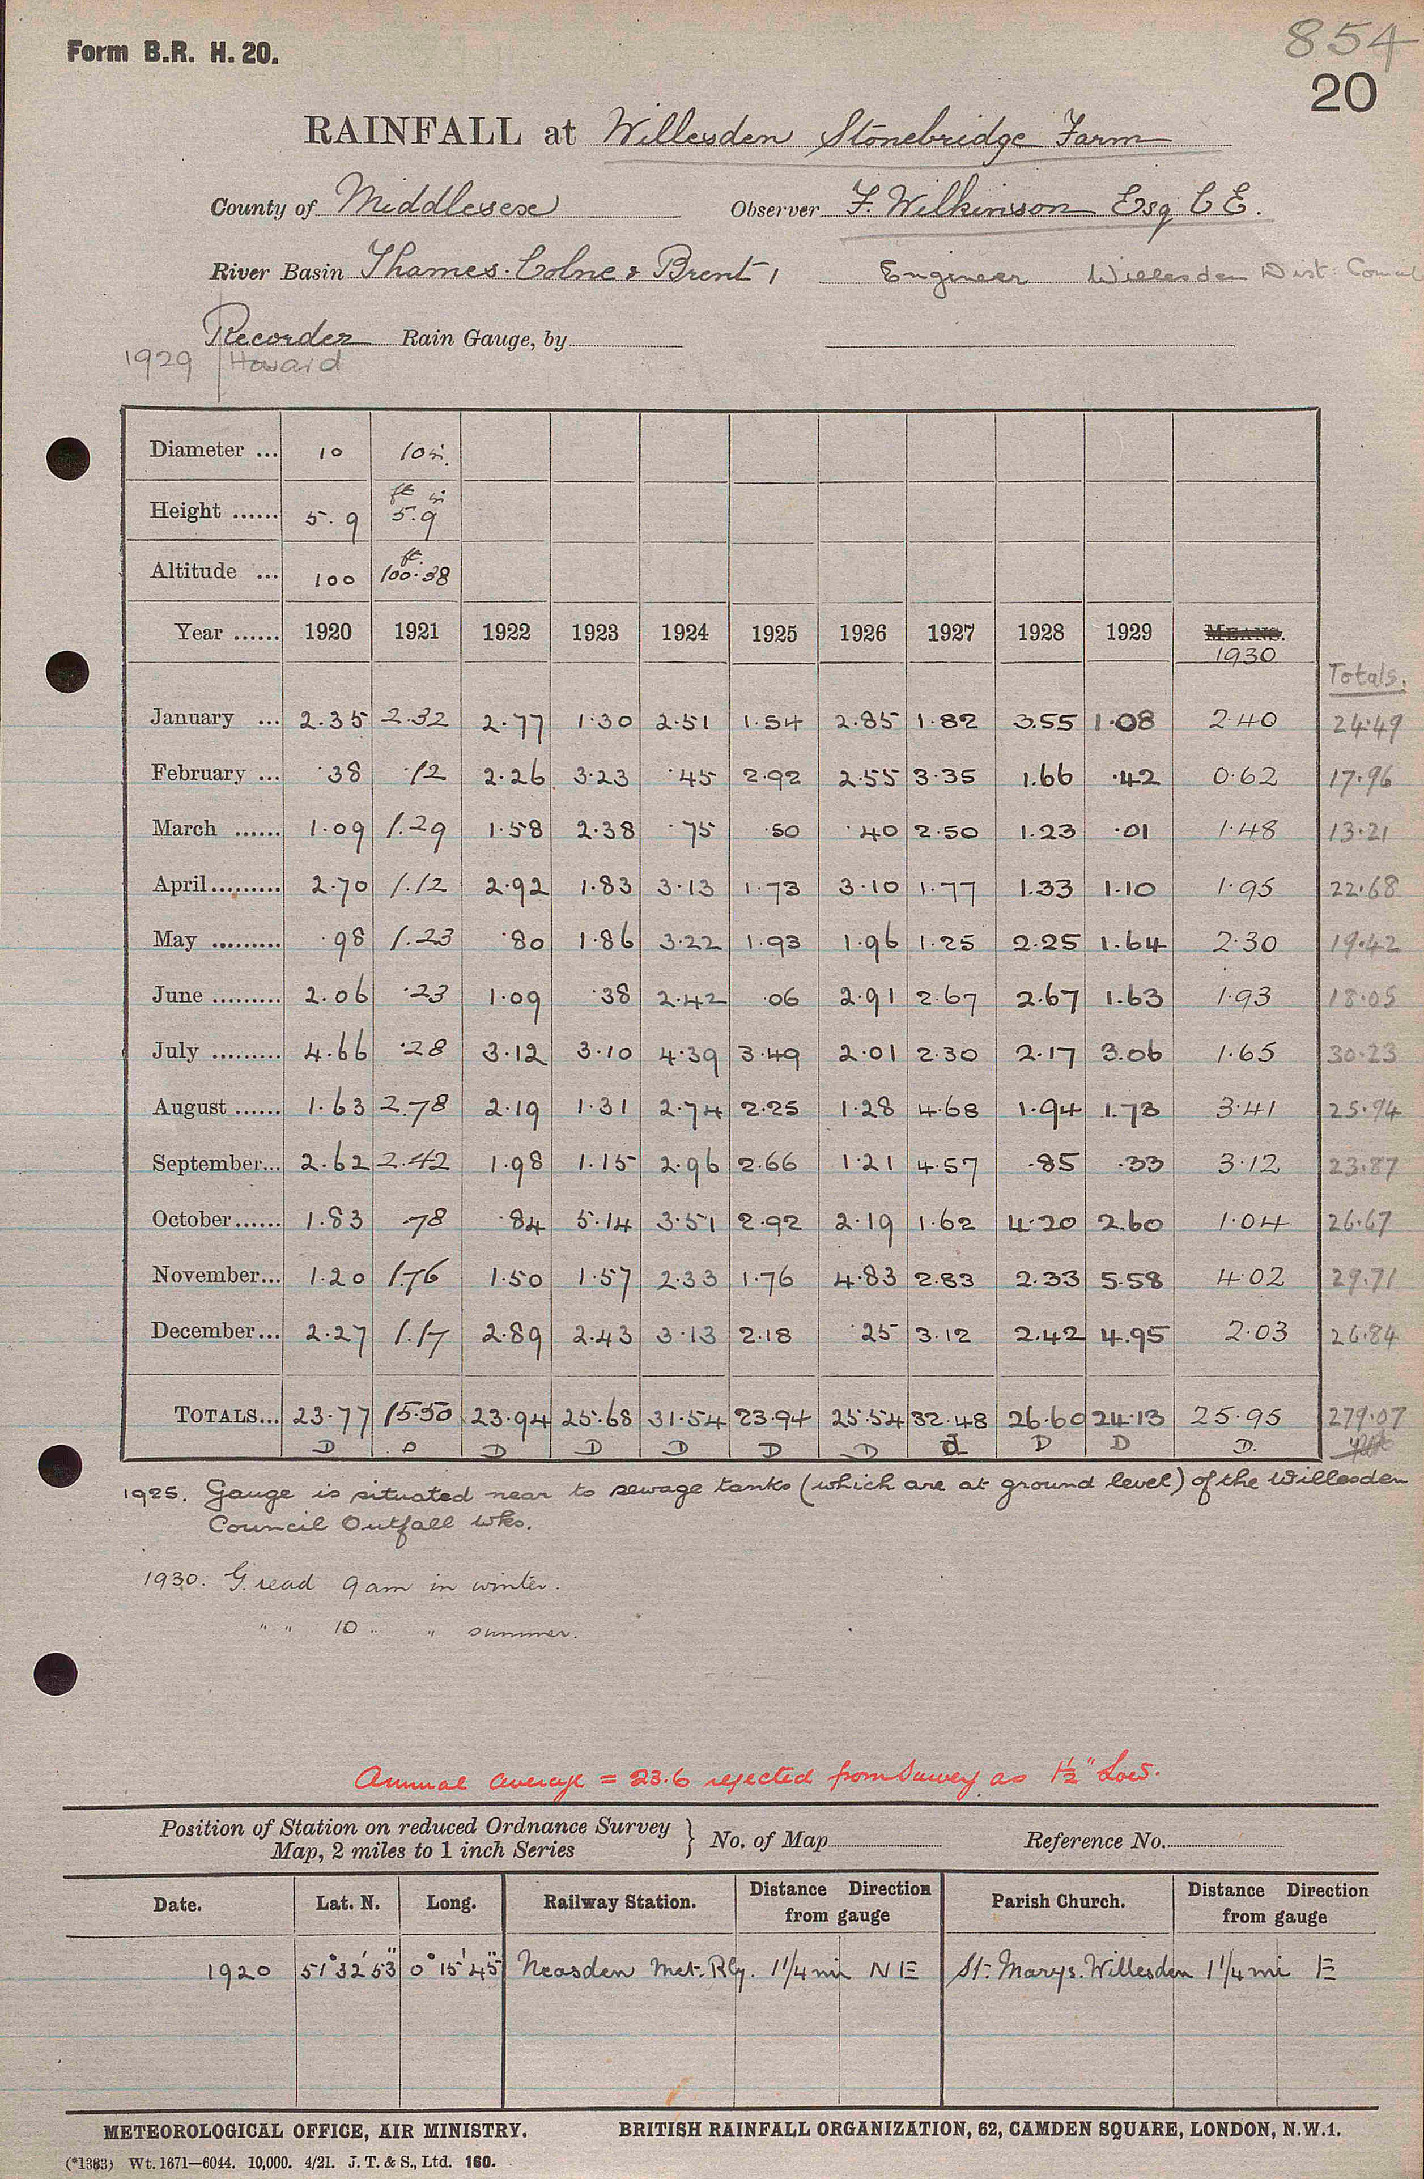 Form B.R. H. 20.
854
20
RAINFALL at Willesden Stonebridge Farm
County of Middlesex Observer F. Wilkinson Esq C E.
River Basin Thames. Colne & Brent 1 Engineer Willesden Dist: Council
Recorder Rain Gauge, by
1929 Howard
Diameter ... 10 10 in.
ft in
Height ...... 5.9 5.9
ft.
Altitude ... 100 100.38
Year ...... 1920 1921 1922 1923 1924 1925 1926 1927 1928 1929 MEANS.
1930
Totals.
January ... 2.35 2.32 2.77 1.30 2.51 1.54 2.85 1.82 3.55 1.08 2.40 24.49
February ... .38 .12 2.26 3.23 .45 2.92 2.55 3.35 1.66 .42 0.62 17.96
March ...... 1.09 1.29 1.58 2.38 .75 .50 .40 2.50 1.23 .01 1.48 13.21
April......... 2.70 1.12 2.92 1.83 3.13 1.73 3.10 1.77 1.33 1.10 1.95 22.68
May ......... .98 1.23 .80 1.86 3.22 1.93 1.96 1.25 2.25 1.64 2.30 19.42
June ......... 2.06 .23 1.09 .38 2.42 .06 2.91 2.67 2.67 1.63 1.93 18.05
July ......... 4.66 .28 3.12 3.10 4.39 3.49 2.01 2.30 2.17 3.06 1.65 30.23
August ...... 1.63 2.78 2.19 1.31 2.74 2.25 1.28 4.68 1.94 1.73 3.41 25.94
September... 2.62 2.42 1.98 1.15 2.96 2.66 1.21 4.57 .85 .33 3.12 23.87
October...... 1.83 .78 .84 5.14 3.51 2.92 2.19 1.62 4.20 2.60 1.04 26.67
November... 1.20 1.76 1.50 1.57 2.33 1.76 4.83 2.83 2.33 5.58 4.02 29.71
December... 2.27 1.17 2.89 2.43 3.13 2.18 .25 3.12 2.42 4.95 2.03 26.84
TOTALS... 23.77 15.50 23.94 25.68 31.54 23.94 25.54 32.48 26.60 24.13 25.95 279.07
D P D D D D D d D D D.
1925. Gauge is situated near to sewage tanks (which are at ground level) of the Willesden
Council Outfall Wks.
1930. G. read 9 am in winter.
" " 10 " " summer.
Annual average = 23.6 rejected from Survey as 1½" Low.
Position of Station on reduced Ordnance Survey
Map, 2 miles to 1 inch Series } No. of Map Reference No.
Date. Lat. N. Long. Railway Station. Distance Direction from gauge Parish Church. Distance Direction from gauge
1920 51° 32' 53" 0° 15' 45" Neasden Met. Rly. 1 1/4 mi NE St. Marys. Willesden 1 1/4 mi E
METEOROLOGICAL OFFICE, AIR MINISTRY. BRITISH RAINFALL ORGANIZATION, 62, CAMDEN SQUARE, LONDON, N.W.1.
(*1383) Wt. 1671—6044. 10,000. 4/21. J. T. & S., Ltd. 160.